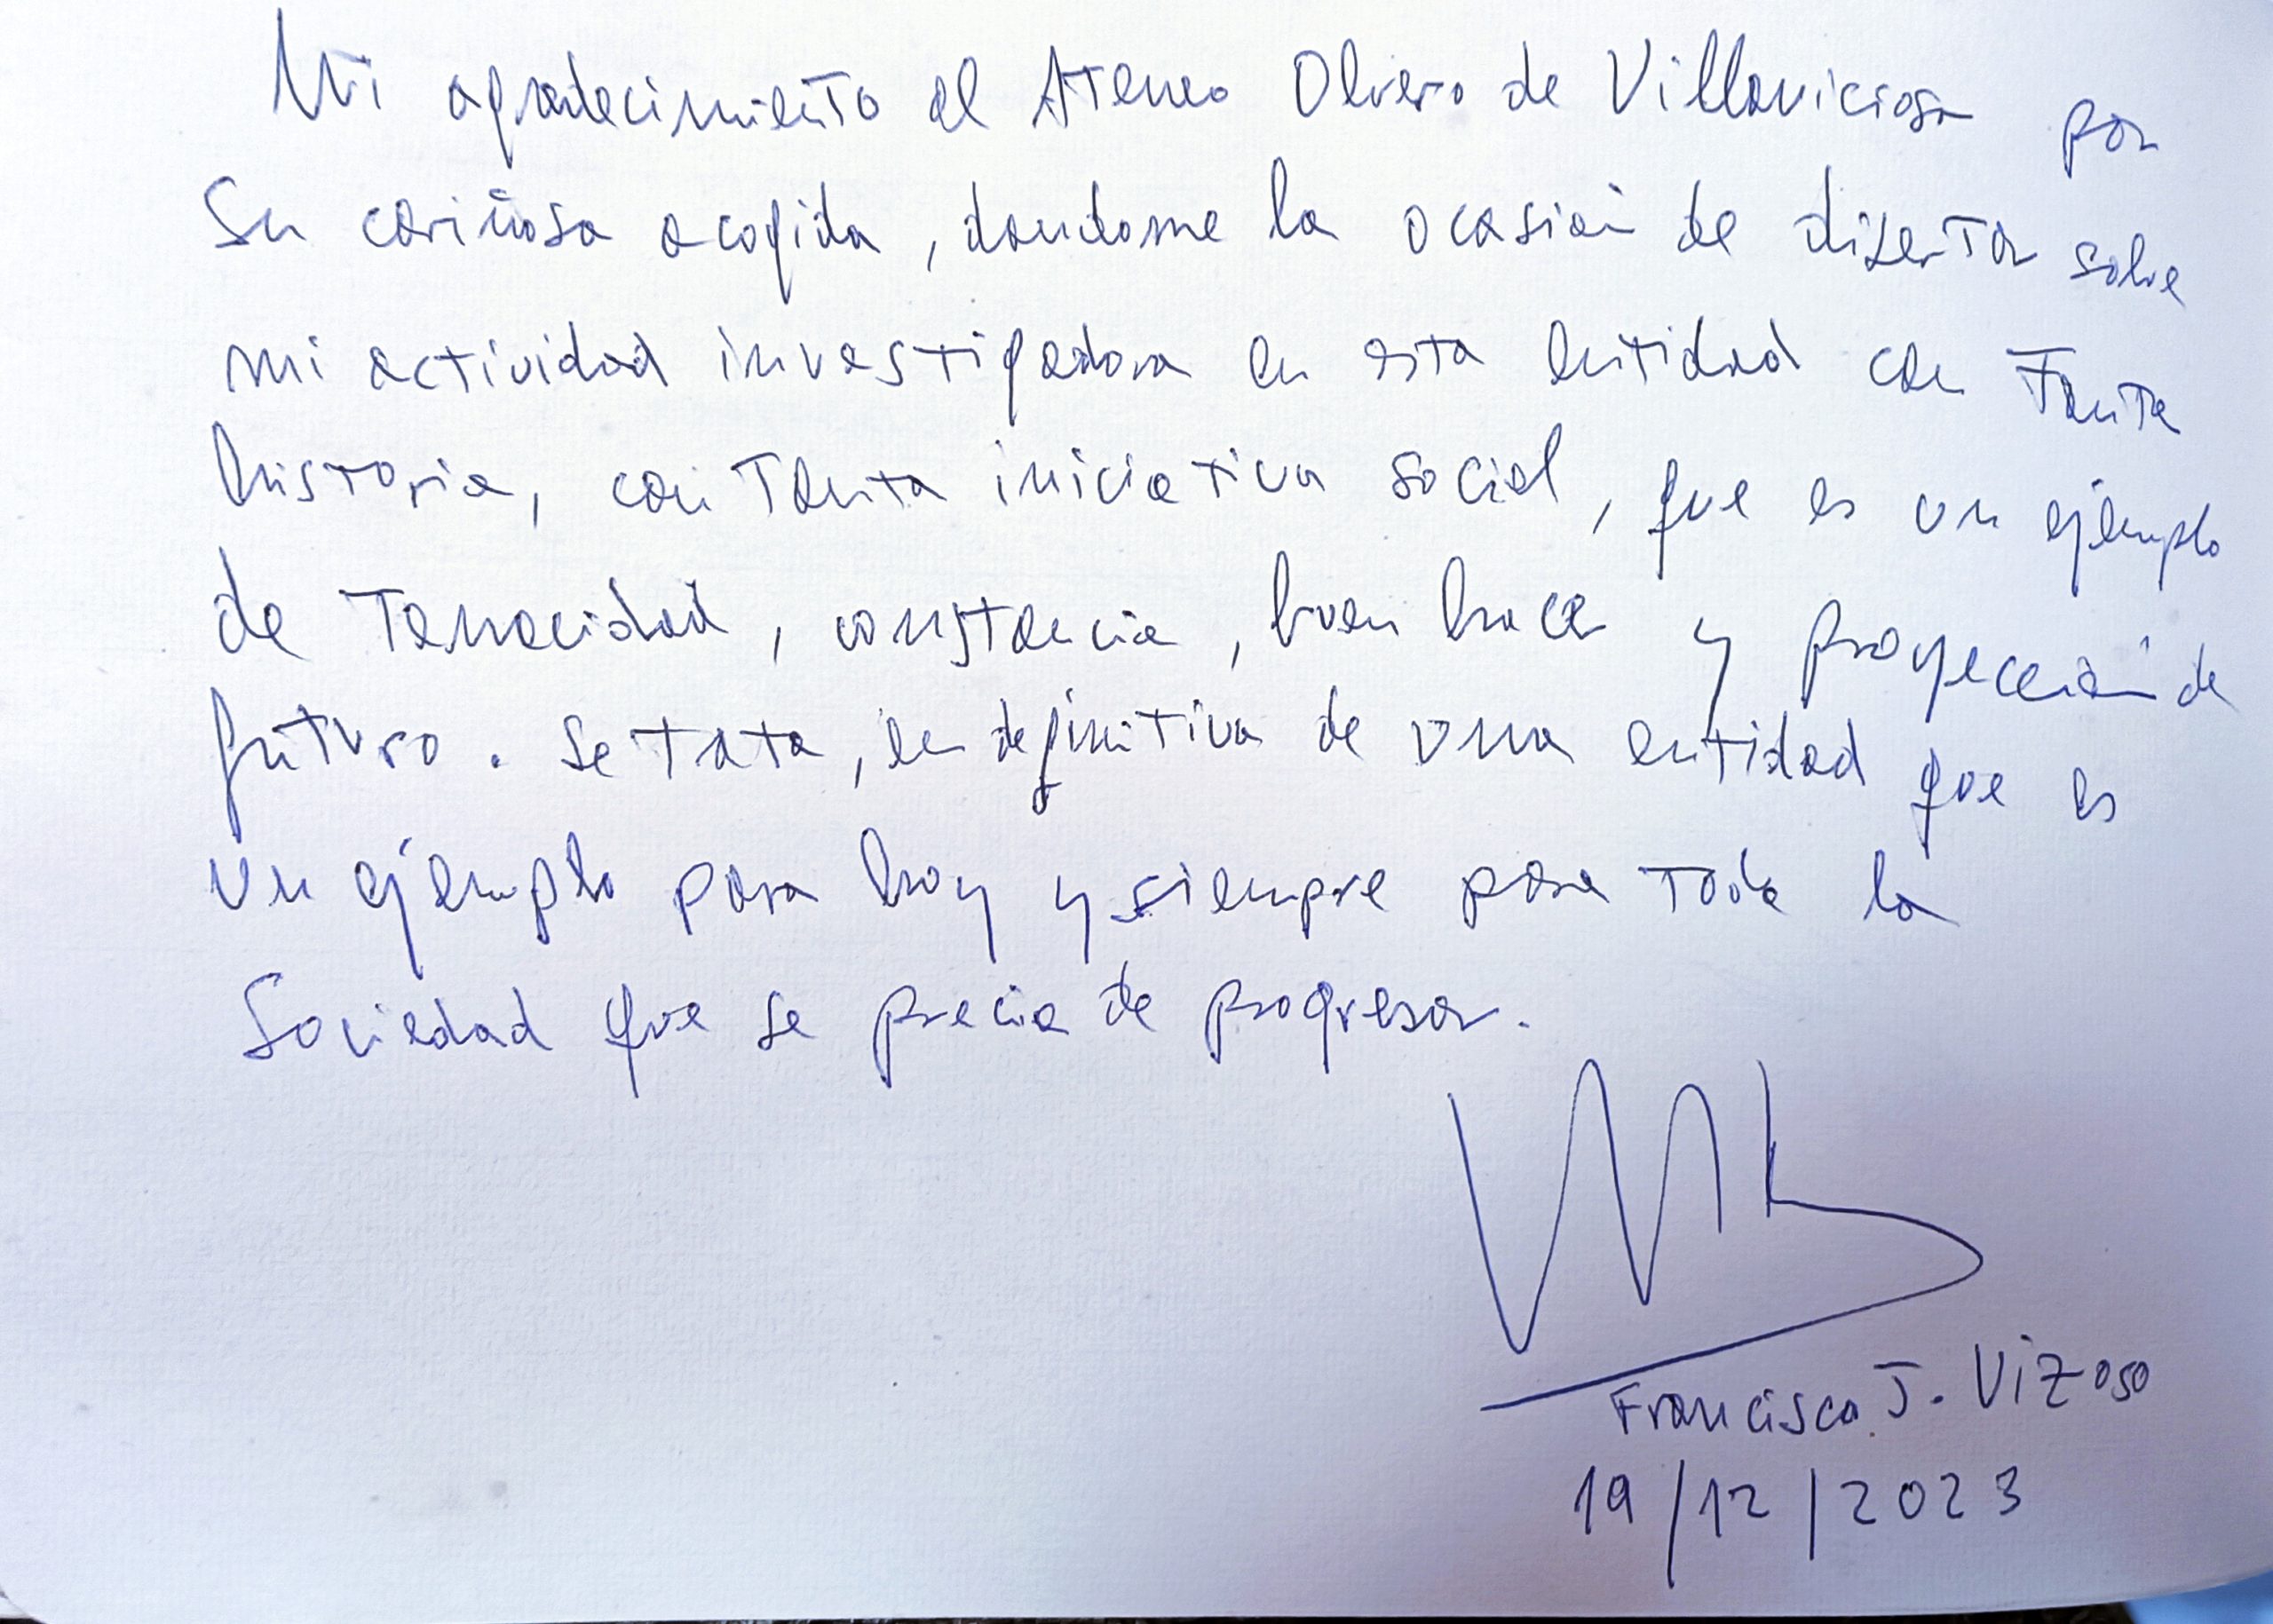 Mi agradecimiento al Ateneo Obrero de Villaviciosa por
su cariñosa acogida, dandome la ocasión de disertar sobre
mi actividad investigadora en esta entidad con tanta
historia, con tanta iniciativa social, que es un ejemplo
de tenacidad, constancia, buen hacer y proyección de
futuro. Se tata, en definitiva de una entidad que es
un ejemplo para hoy y siempre para toda la
Sociedad que se precia de progresar.
Francisco J. Vizoso
19/12/2023